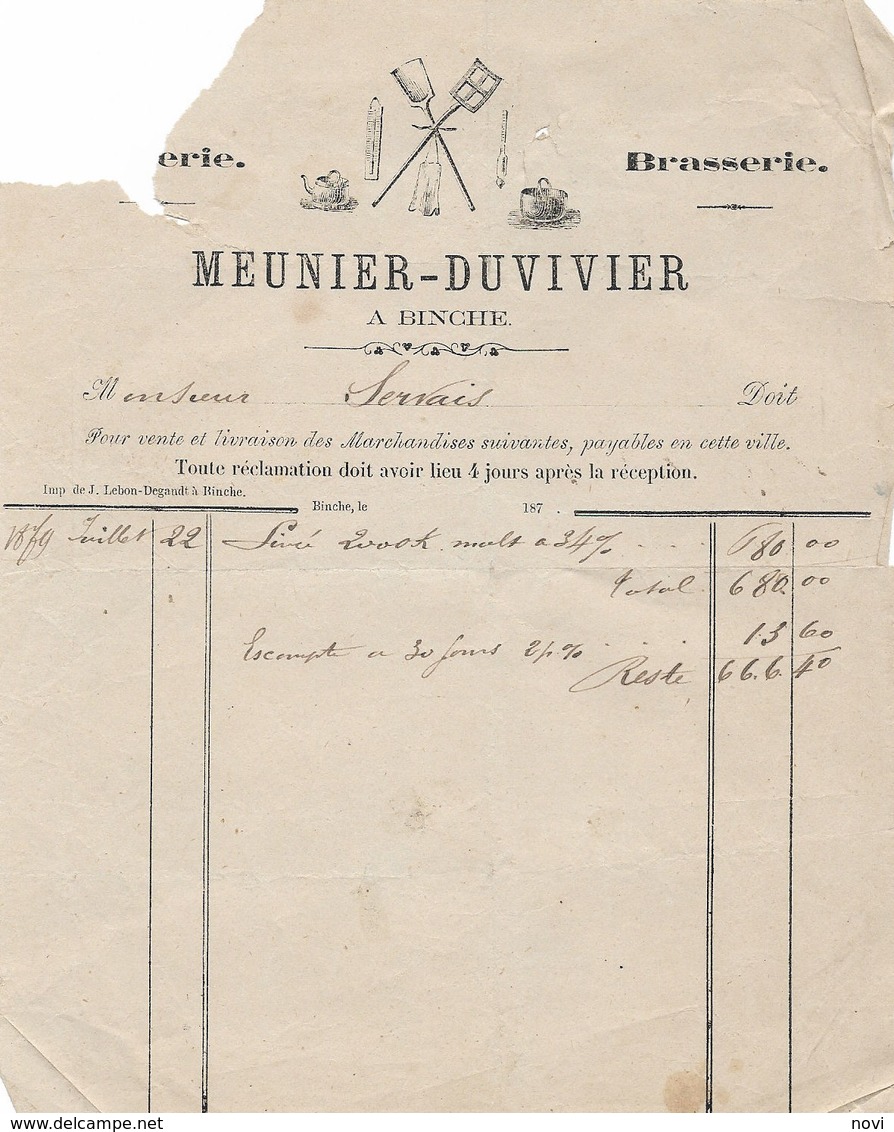 erie.
Brasserie.
MEUNIER-DUVIVIER
A BINCHE.
Monsieur Servais Doit
Pour vente et livraison des Marchandises suivantes, payables en cette ville.
Toute réclamation doit avoir lieu 4 jours après la réception.
Imp de J. Lebon-Degandt à Binche.
Binche, le 187 .
1879 Juillet 22 Livré 2000 K malt a 34 % 680 00
Total 680 00
Escompte a 30 jours 2 p. % 13 60
Reste 666. 40
www.delcampe.net
novi